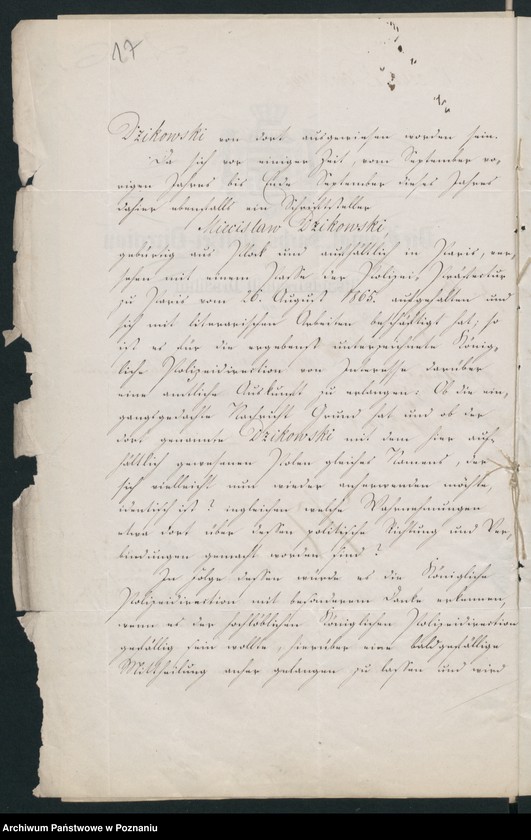 17
Dzikowski von dort ausgewiesen worden sein.
Da sich vor einiger Zeit, vom September vo-
rigen Jahres bis Ende September dieses Jahres
dahier ebenfalls ein Schriftsteller
Miecislaw Dzikowski
gebürtig aus Plock und aufhältlich in Paris, ver-
sehen mit einem Passe der Polizei-Präfectur
zu Paris vom 26. August 1865. aufgehalten und
sich mit literarischen Arbeiten beschäftigt hat, so
ist es für die ergebenst unterzeichnete König-
liche Polizeidirection von Interesse darüber
eine amtliche Auskunft zu erlangen: Ob die ein-
gangsgedachte Nachricht Grund hat und ob der
dort genannte Dzikowski mit dem hier auf-
hältlich gewesenen Polen gleiches Namens, der
sich vielleicht nun wieder anherwenden möchte,
identisch ist? ingleichen welche Wahrnehmungen
etwa dort über dessen politische Richtung und Ver-
bindungen gemacht worden sind?
In Folge dessen würde es die Königliche
Polizeidirection mit besonderem Danke erkennen,
wenn es der hochlöblichen Königlichen Polizeidirection
gefällig sein wollte, hierüber eine baldgefällige
Mittheilung anher gelangen zu lassen und wird
Archiwum Państwowe w Poznaniu